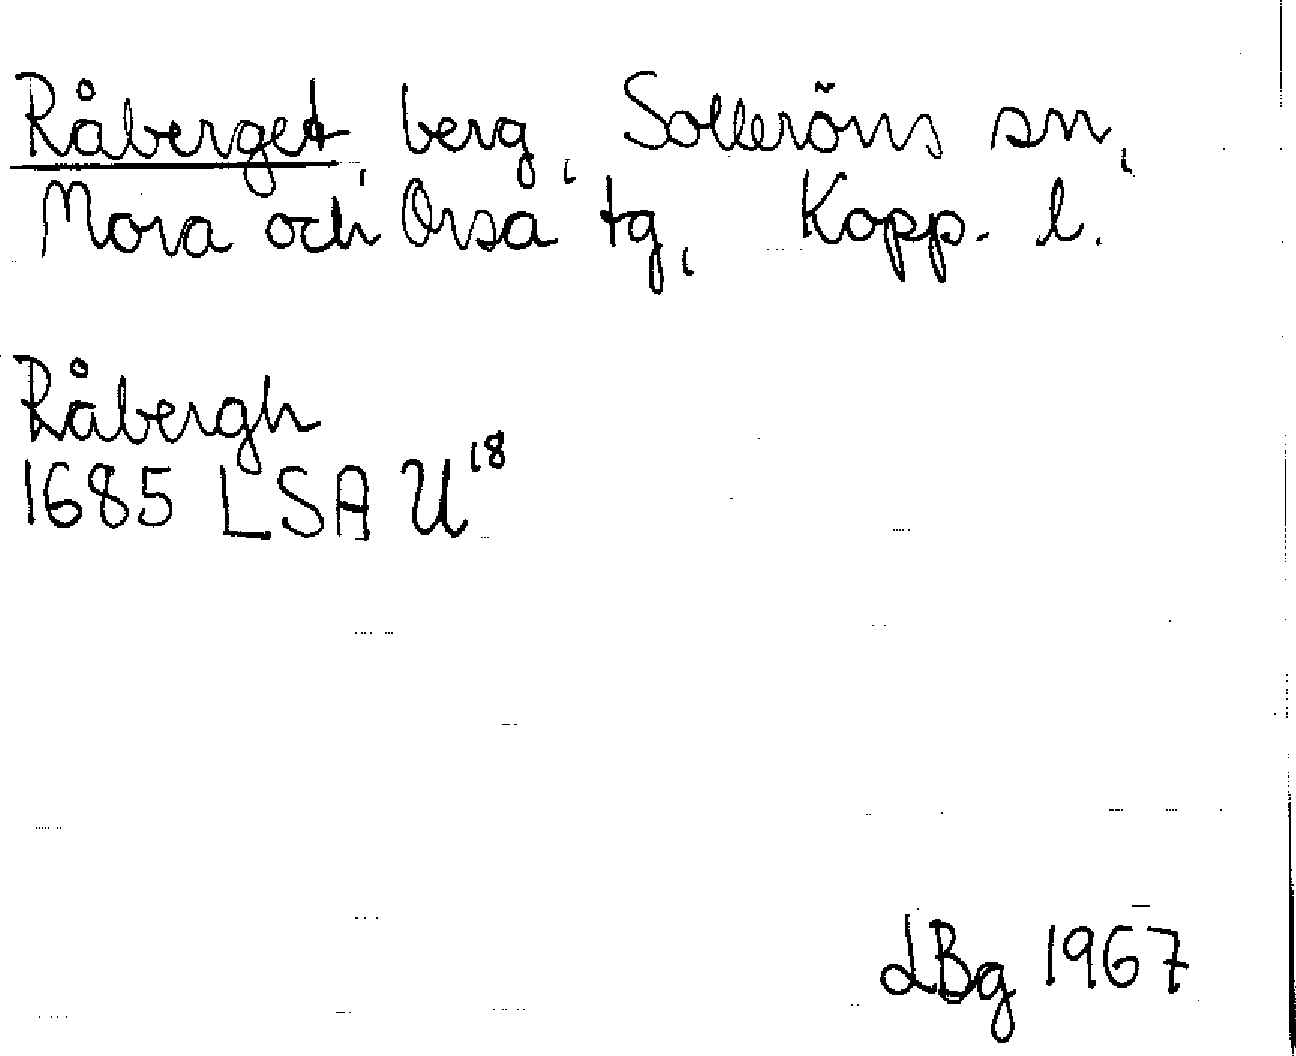 Råberget, berg, Solleröns sn,
Mora och Orsa tg, Kopp. l.
Råbergh
1685 LSA U18
LBg 1967